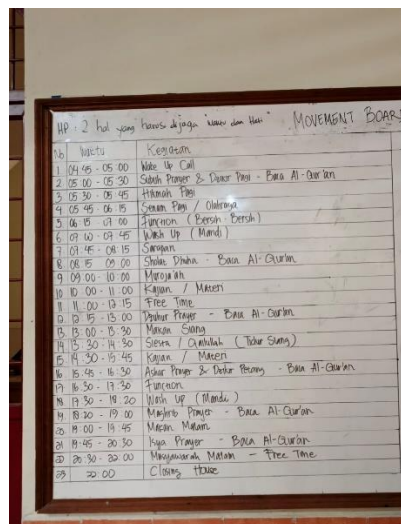 HP : 2 hal yang harus dijaga "Waktu dan Hati" MOVEMENT BOAR
No Waktu Kegiatan
1 04 45 - 05 00 Wake Up Call
2 05 00 - 05 30 Subuh Prayer & Dzikir Pagi - Baca Al-Qur'an
3 05 30 - 05 45 Hikmah Pagi
4 05 45 - 06 15 Senam Pagi / Olahraga
5 06 15 - 07 00 Function (Bersih-Bersih)
6 07 00 - 07 45 Wash Up (Mandi)
7 07 45 - 08 15 Sarapan
8 08 15 09 00 Sholat Dhuha - Baca Al-Qur'an
9 09 00 - 10 00 Muroja'ah
10 10 00 - 11 00 Kajian / Materi
11 11 00 - 12 15 Free Time
12 12 15 - 13 00 Dzuhur Prayer - Baca Al-Qur'an
13 13 00 - 13 30 Makan Siang
14 13 30 - 14 30 Siesta / Qailullah (Tidur Siang)
15 14 30 - 15 45 Kajian / Materi
16 15 45 - 16 30 Ashar Prayer & Dzikir Petang - Baca Al-Qur'an
17 16 30 - 17 30 Function
18 17 30 - 18 20 Wash Up (Mandi)
19 18 20 - 19 00 Maghrib Prayer - Baca Al-Qur'an
20 19 00 - 19 45 Makan Malam
21 19 45 - 20 30 Isya Prayer - Baca Al-Qur'an
22 20 30 - 22 00 Musyawarah Malam - Free Time
23 22 00 Closing House